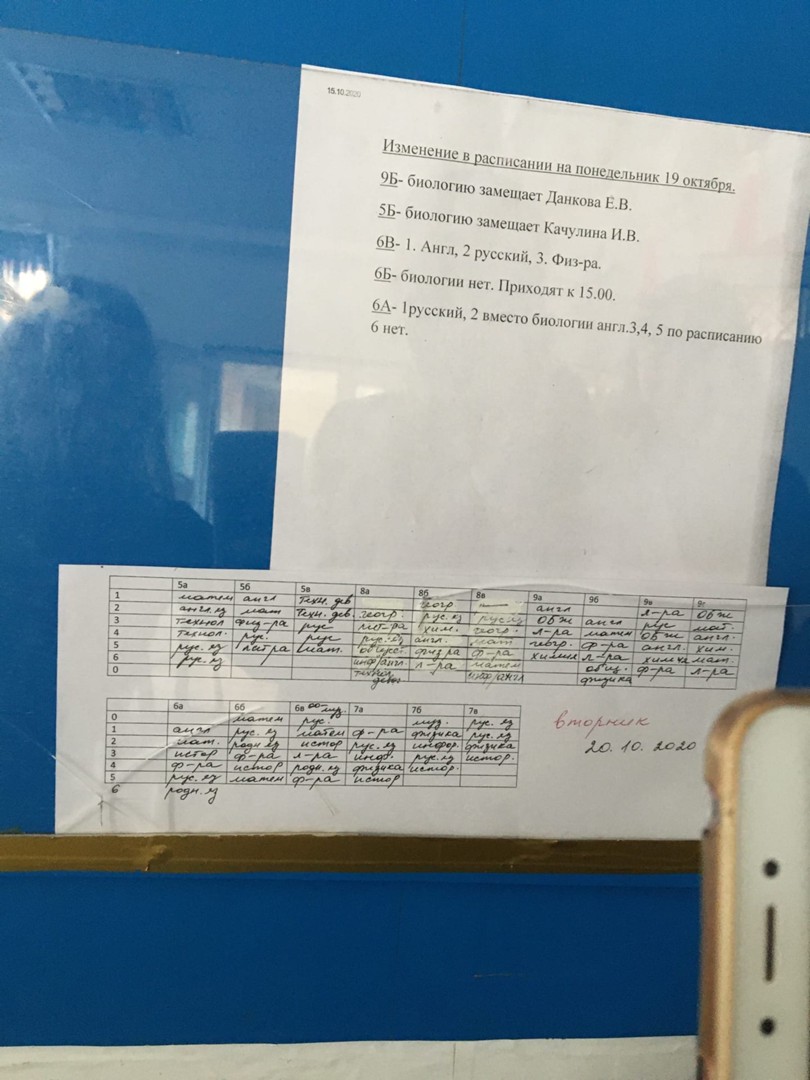 15.10.2020
Изменение в расписании на понедельник 19 октября.
9Б- биологию замещает Данкова Е.В.
5Б- биологию замещает Качулина И.В.
6В- 1. Англ, 2 русский, 3. Физ-ра.
6Б- биологии нет. Приходят к 15.00.
6А- 1русский, 2 вместо биологии англ.3,4, 5 по расписанию
6 нет.
5а 5б 5в 8а 8б 8в 9а 9б 9в 9г
1 матем англ техн. дев геогр — англ л-ра ОБЖ
2 англ.яз мат техн. дев. геогр рус.яз рус.яз ОБЖ англ рус мат.
3 технол физ-ра рус лит-ра хим. геогр. л-ра матем ОБЖ англ.
4 технол. рус. рус рус.яз англ. мат геогр. ф-ра англ. хим.
5 рус.яз лит-ра мат. общест. физ-ра ф-ра химия л-ра химия мат.
6 рус.яз инф/англ л-ра матем общ. ф-ра л-ра
0 технол девоч инф/англ физика
6а 6б 6в 7а 7б 7в
0 матем рус. муз. рус.яз
1 англ рус.яз матем ф-ра физика рус.яз
2 мат. родн.яз истор рус.яз инфор. физика
3 истор ф-ра л-ра инф. рус.яз истор.
4 ф-ра истор родн.яз физика истор.
5 рус.яз матем ф-ра истор
6 родн.яз
вторник
20.10.2020